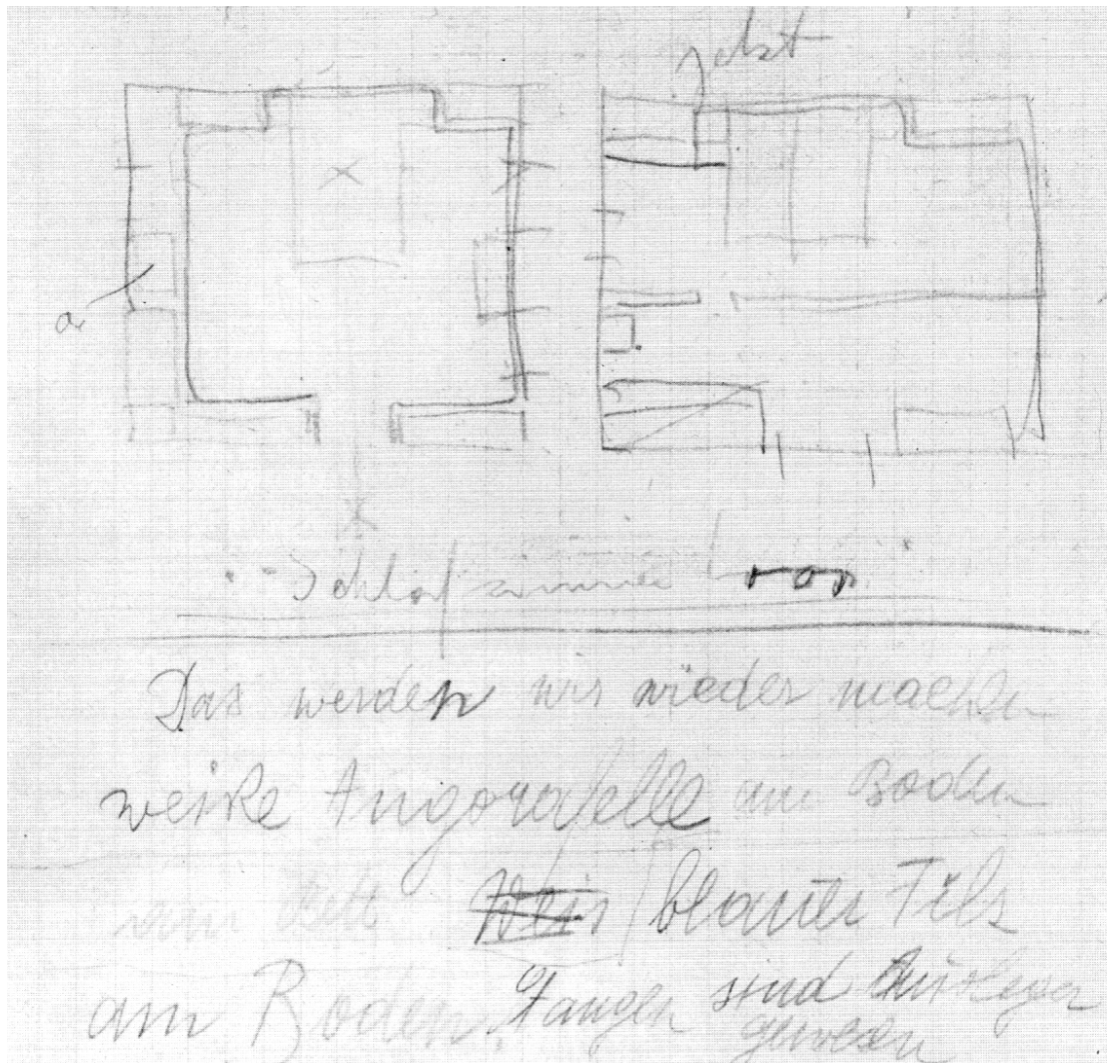 jetzt
a
Schlafzimmer
Das werden wir wieder machen
weiße Angorafelle am Boden
am Bett blauer Filz
am Boden. sind
gewesen